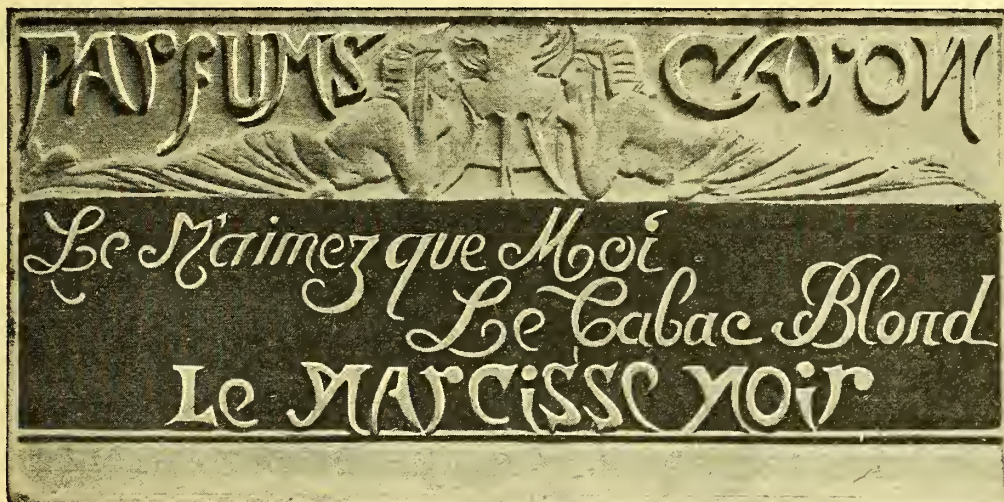 PARFUMS CARON
Le N'aimez que Moi
Le Tabac Blond
Le NARCISSE NOIR